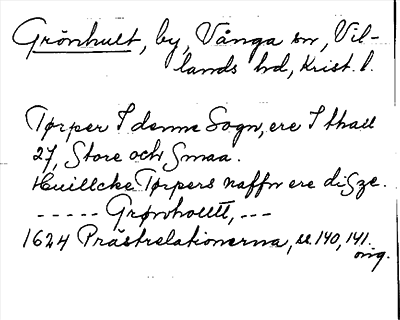 Grönhult, by, Vånga sn, Vil-
lands hd, Krist. l.
Tørper I denne Sogn, ere I thall
27, Store och Smaa.
Huillcke Tørpers naffn ere diSze.
----- Grønhollt, ---
1624 Prästrelationerna, s. 140, 141.
orig.